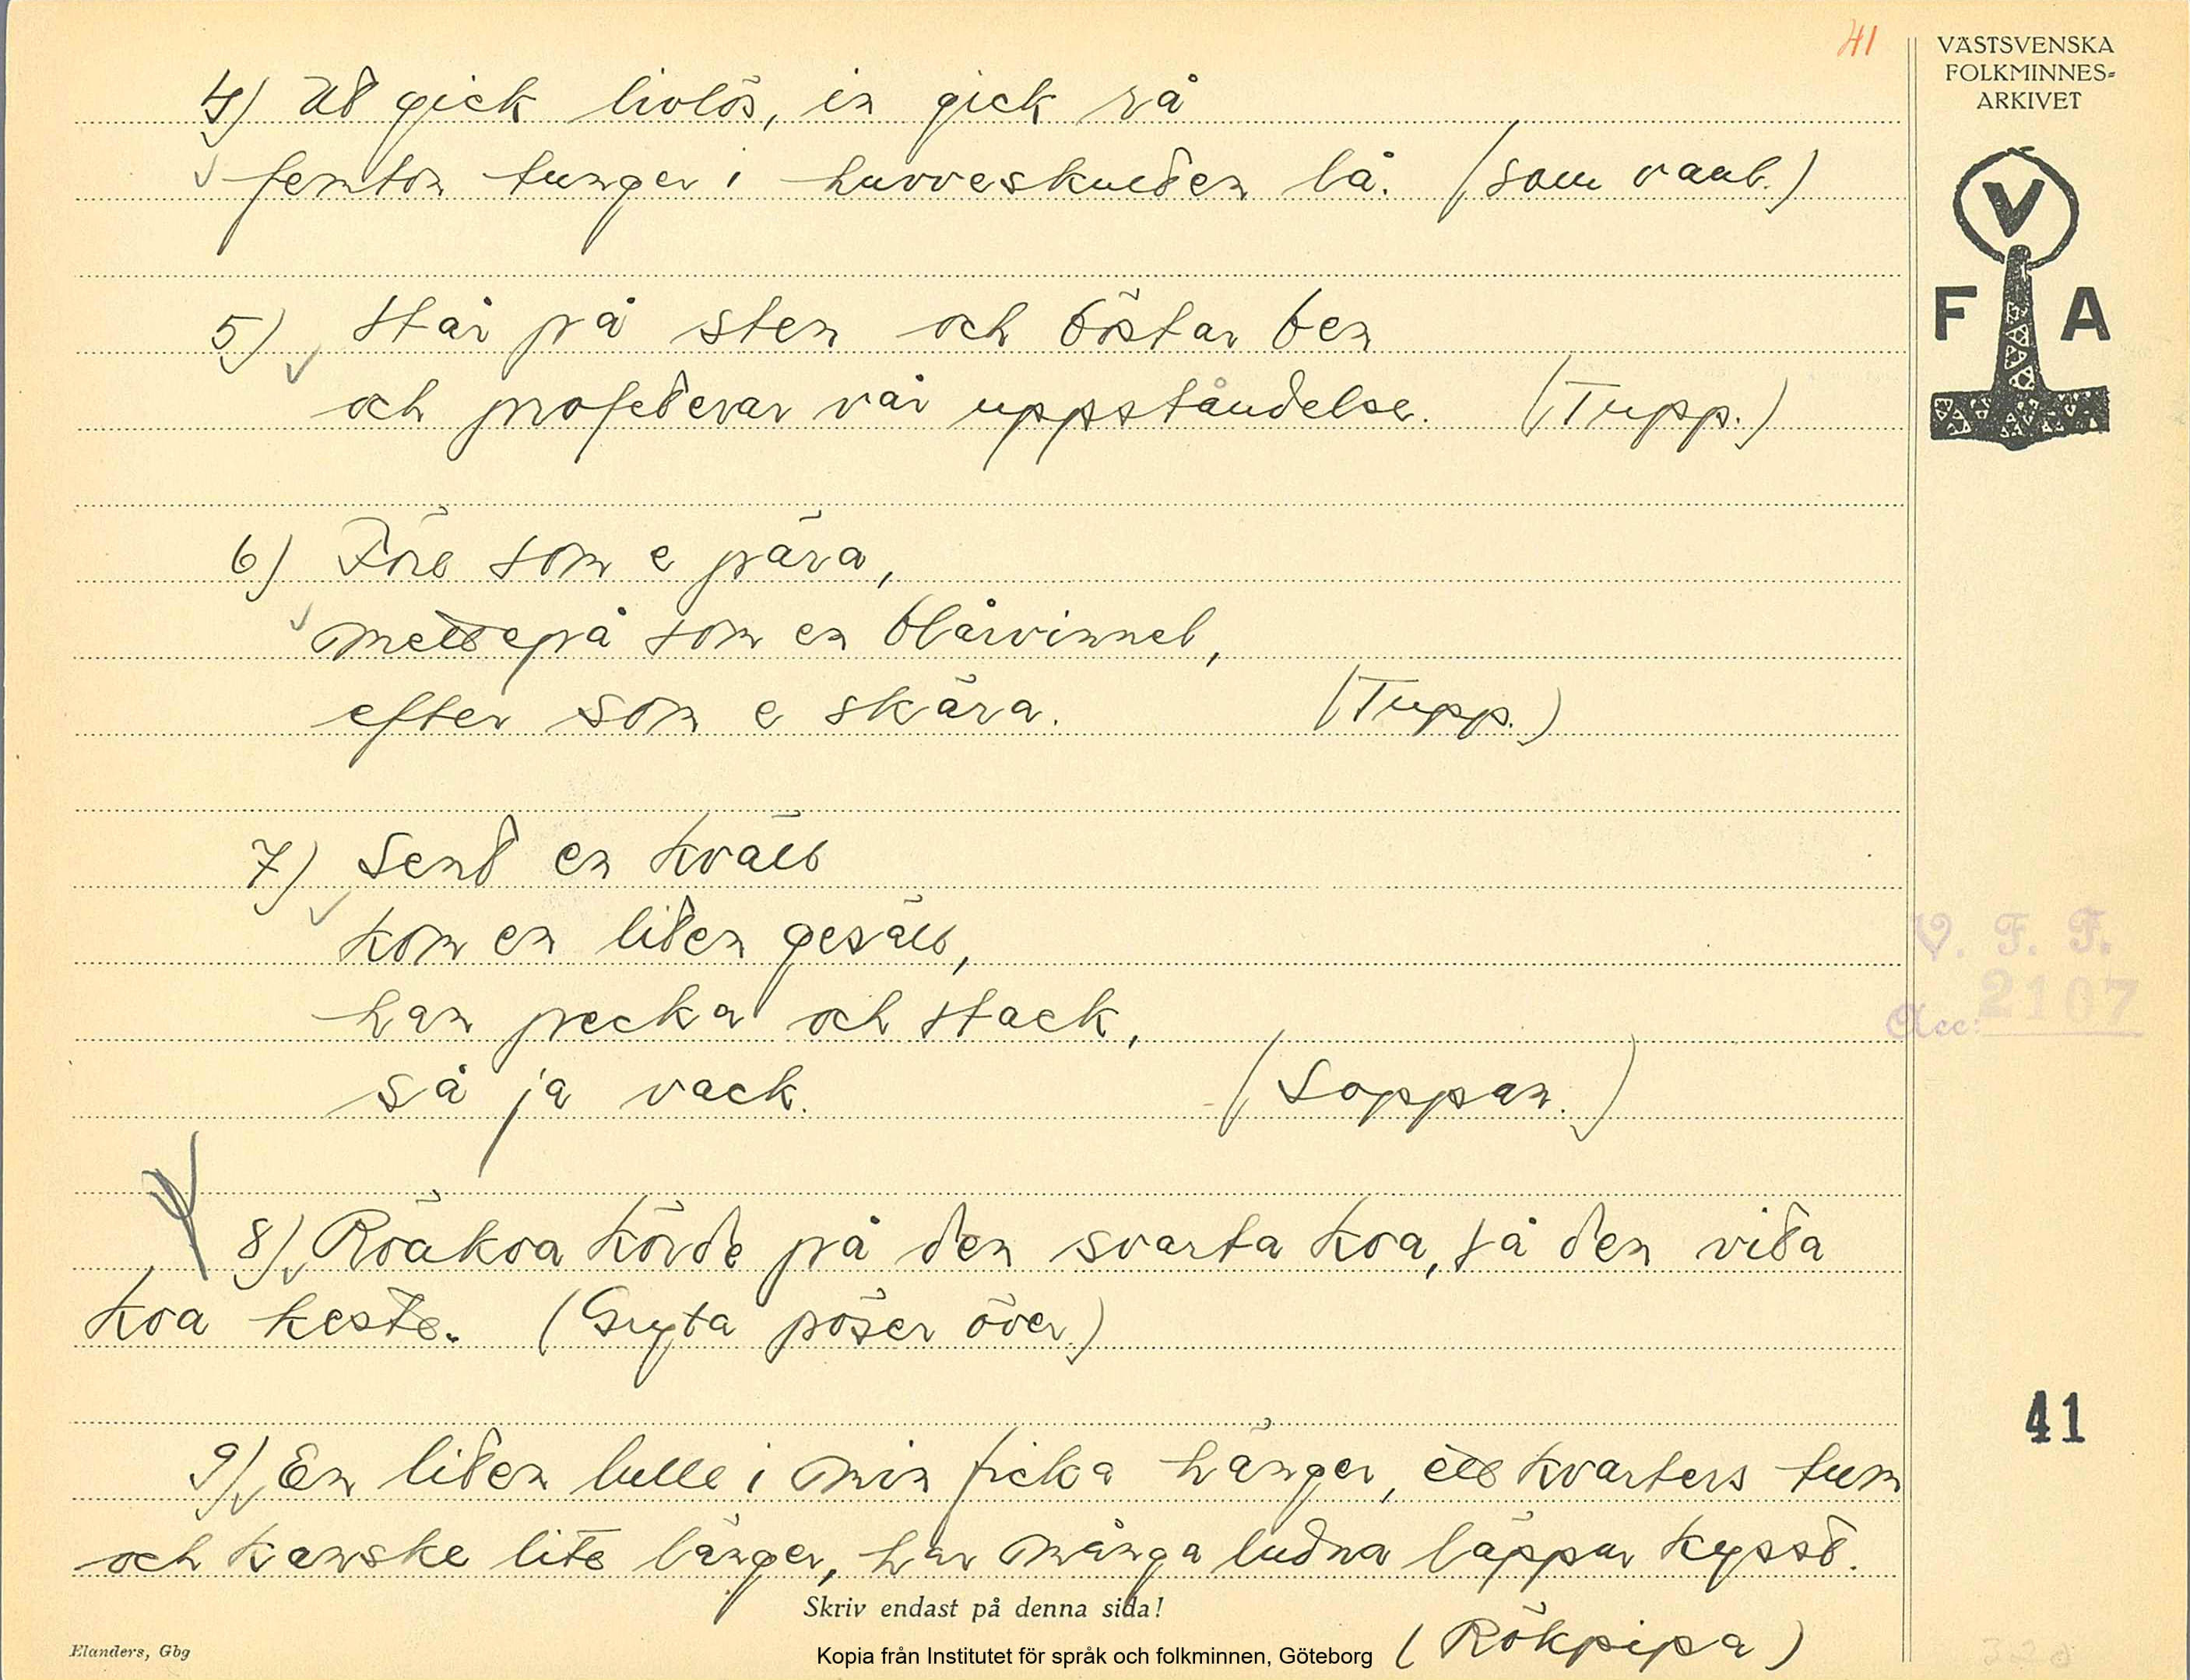 41
VÄSTSVENSKA
FOLKMINNES-
ARKIVET
V
F A
4) Ut gick livlös, in gick rå
femton tunger i huvveskuden lå. (som vanl.)
5) Står på sten och böstar ben
och profeterar vår uppståndelse. (Tupp.)
6) Före som e pära,
mettepå som en blårvinnel,
efter som e skära. (Tupp.)
7) Sent en kväll
kom en liten gesäll,
han pecka och stack,
så ja vack. (Loppan.)
8) Röakoa körde på den svarta koa, så den vita
koa keste. (Gryta pöser över.)
9) En liten lulle i min ficka hänger, ett kvarters tum
och kanske lite länger, har många ludna läppar kysst.
(Rökpipa)
V. F. F.
Acc: 2107
41
Skriv endast på denna sida!
Elanders, Gbg
Kopia från Institutet för språk och folkminnen, Göteborg